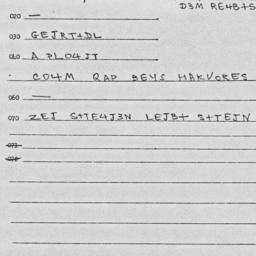 D3M RE4B+S
020 —
030 GEJRT+DL
040 A PLO4JT
CO4M QAP BEYS HAKVORES
060 —
070 ZEJ S+TE4J3N LEJB+ S+TEJN